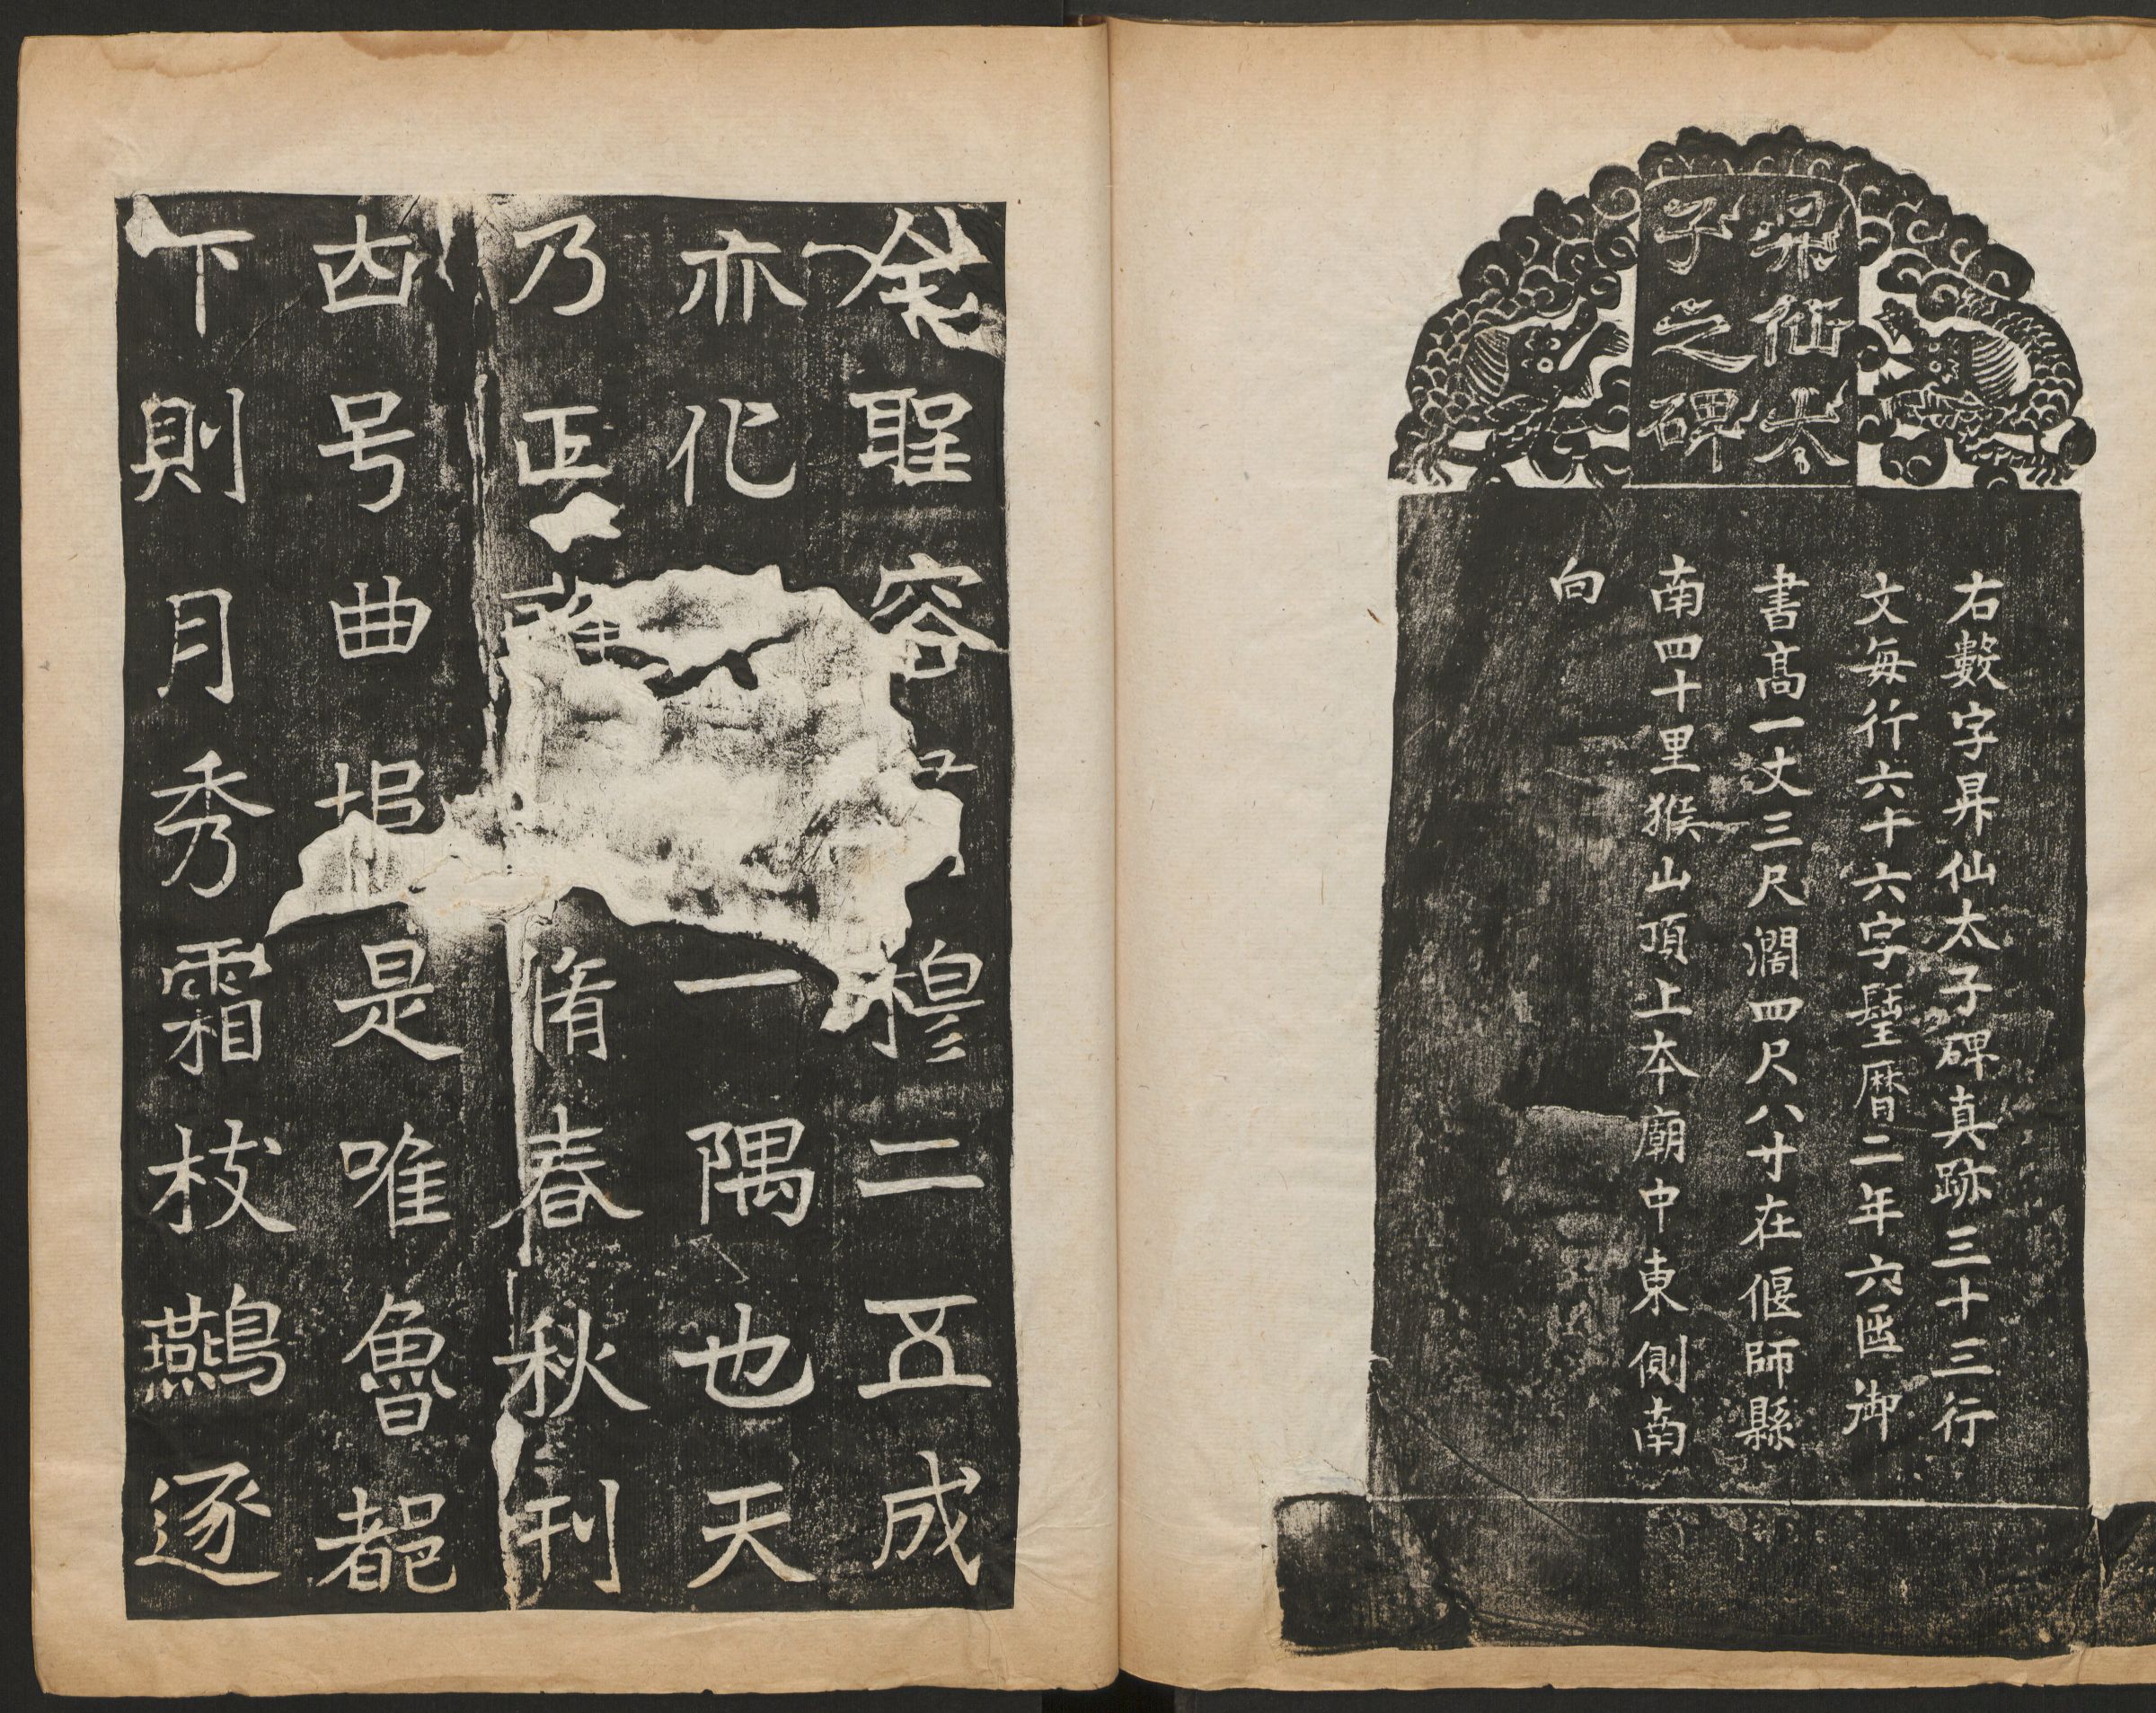 昇仙太
子之碑
右數字昇仙太子碑真跡三十三行
文每行六十六字聖曆二年六囝御
書高一丈三尺濶四尺八寸在偃師縣
南四十里猴山頂上本廟中東側南
向
聖容穆二五成
亦化一隅也天
乃正脩春秋刊
古号曲阜是唯魯都
下則月秀霜枝鷰逐